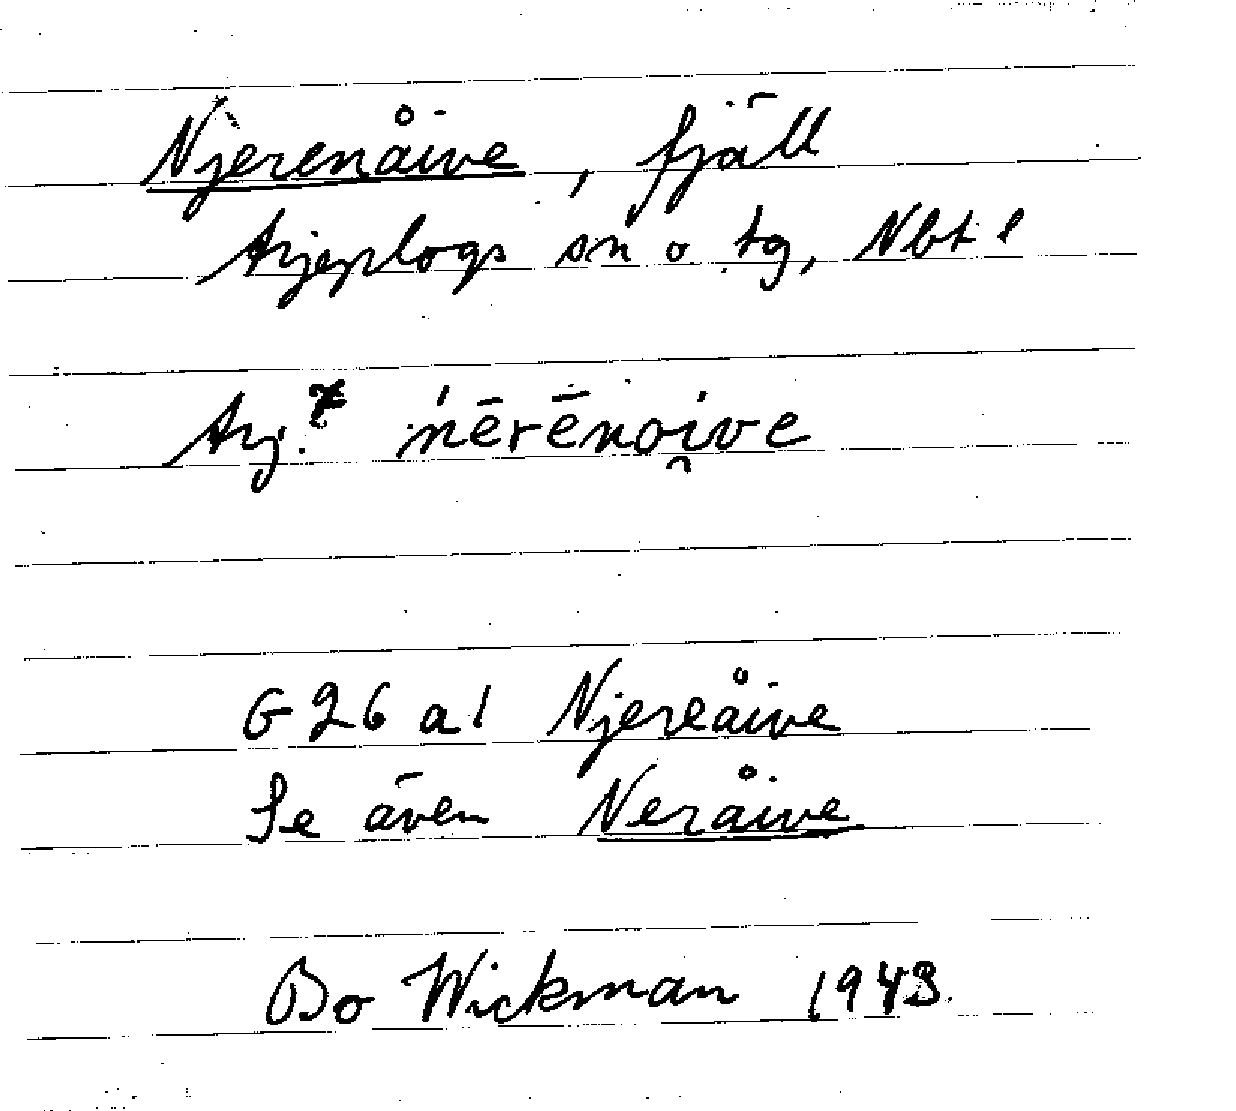 Njerenåive, fjäll
Arjeplogs sn o tg, Nbt l
Arj. ńērēnoi̯ve
G 26 a1 Njereåive
Se även Neråive
Bo Wickman 1943.